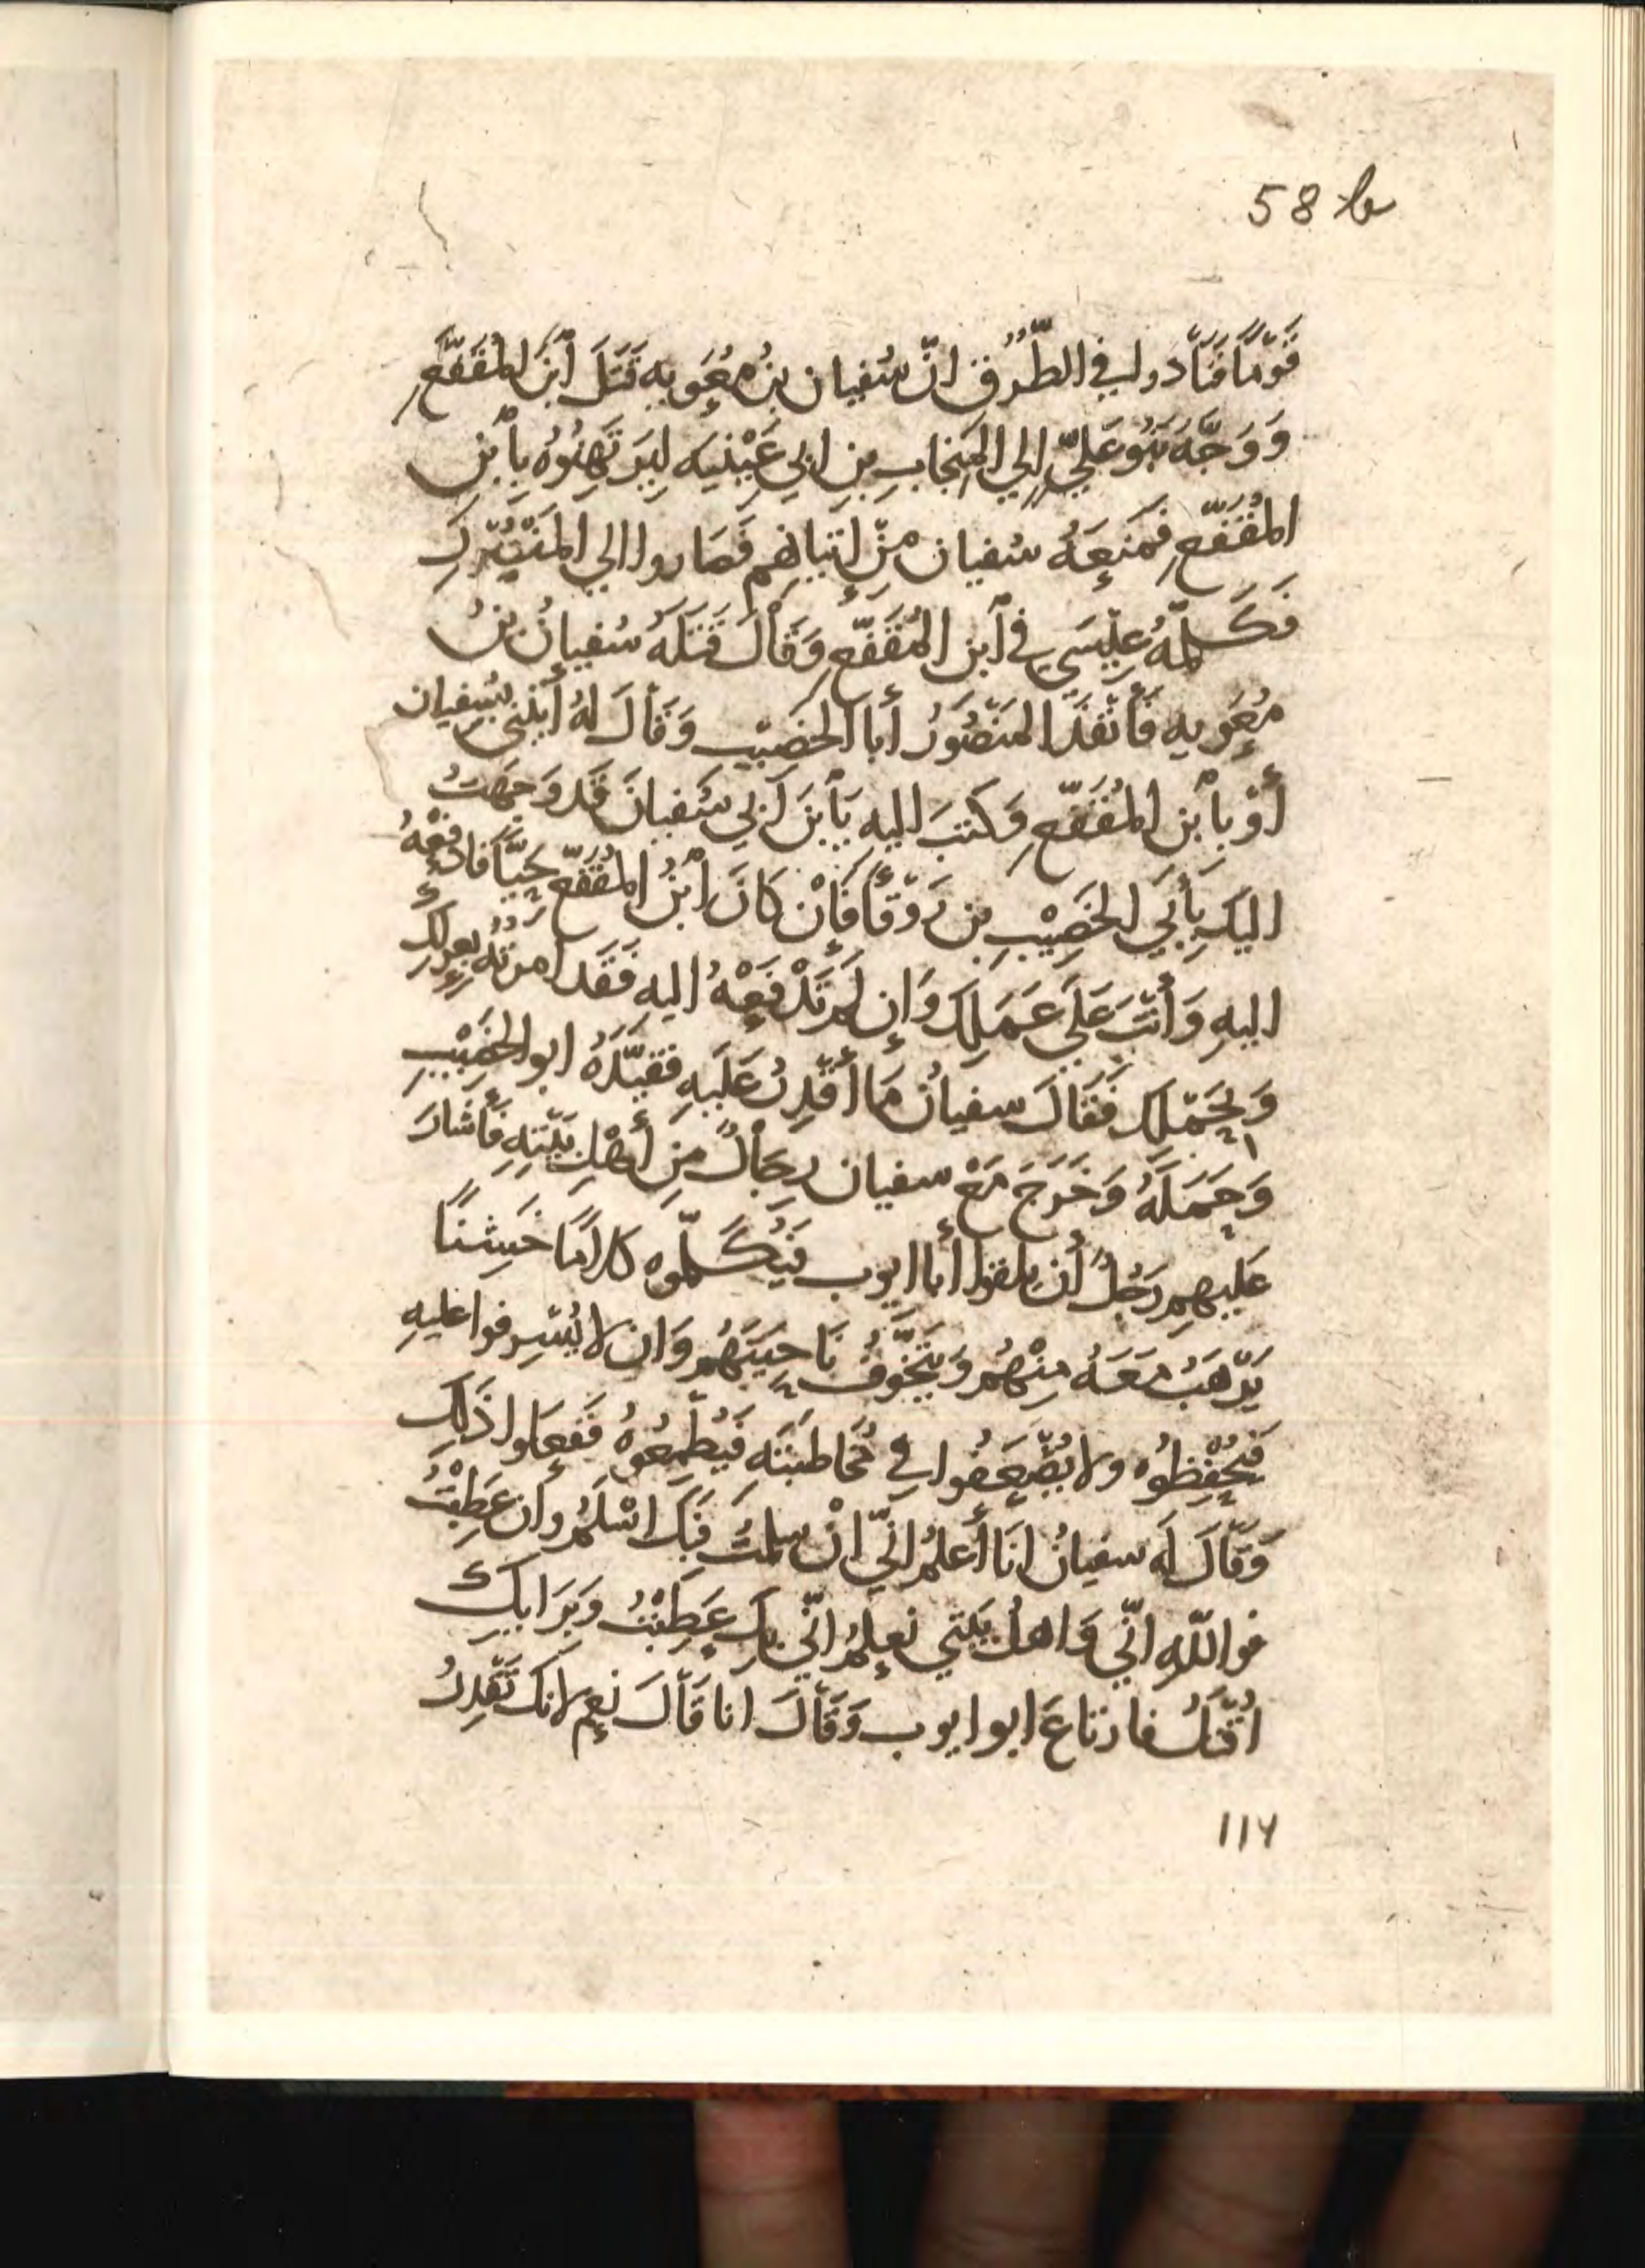 58 b
قَوْمًا فَنَادَوا في الطُّرُقِ انّ سُفيان بنُ مُعَويه قَتَلَ ابْنَ المُقَفَّعِ
وَوَجَّهَ بَنُو عَلِيٍّ الي المِنجابِ بنِ ابي عُيَيْنيَه لِيَرتَهِنُوُه بِأبْنِ
المُقَفَّعِ فَمَنَعَهُ سُفيان مِنْ إتيانِهِم فَصَاروا الي المَنْصُورِ
فَكَلَّمَهُ عِيسَي في أبنِ المُقَفَّعِ وَقَالَ قَتَلَهُ سُفيانُ بنُ
مُعَويه فَأنْفَذَ المَنْصُورُ أبا الخَصِيْب وَقَالَ لَهُ أئتِنِي بسُفيان
أوْ بأبن المُقَفَّعِ وَكتَبَ اليه يَأبْنَ أبِي سُفيانَ قَد وَجَهتُ
اليكَ بأَبِي الخَصِيْبِ بن رَوْقًا فَإنْ كَانَ ابْنُ المُقَفَّعِ حَيَّا فَادفَعْهُ
اليهِ وَأنْتَ عَلَي عَمَلِكَ وَإن لَم تَدْفَعْهُ اليهِ فَقَد امرتُهُ بعزلِكَ
وَبِحَمْلِكَ فَقَالَ سفيانُ مَا أقْدِرُ عَلَيهِ فَقيَّدَهُ ابو الخَصِيْبِ
وَحَمَلَهُ وَخَرَجَ مَعَ سفيان رِجَالٌ مِن أهْلِ بَيْتِهِ فَأشارَ
عَليهِم رَجُلٌ أن يلقوا أبا ايوب فَيُكَلِّموه كلامًا خَشِنًا
يَرْهَبُ مَعَهُ مِنْهُم وَيَتَخَوَّفُ نَاحِيَتَهُم وَان لا يُسْرِفوا عليهِ
فَيُحْفِظُوُه ولا يُضْعِفُوا في مُخاطَبَتَهِ فَيُطْمِعُوهُ فَفَعَلوا ذَلِكَ
وَقَالَ لَه سفيانُ انَا أعلَمُ انّي انْ سلمتُ فَبِكَ اسْلَمُ وان عَطِبْتُ
فوالله انّي وَاهلُ بَيْتِي نعلمُ انّي بكَ عَطِبْتُ وَبِرَايِكَ
اُقْتَلُ فارتاعَ ابو ايوب وَقَالَ انا قَالَ نعم لانك تَقْدِرُ
١١٧